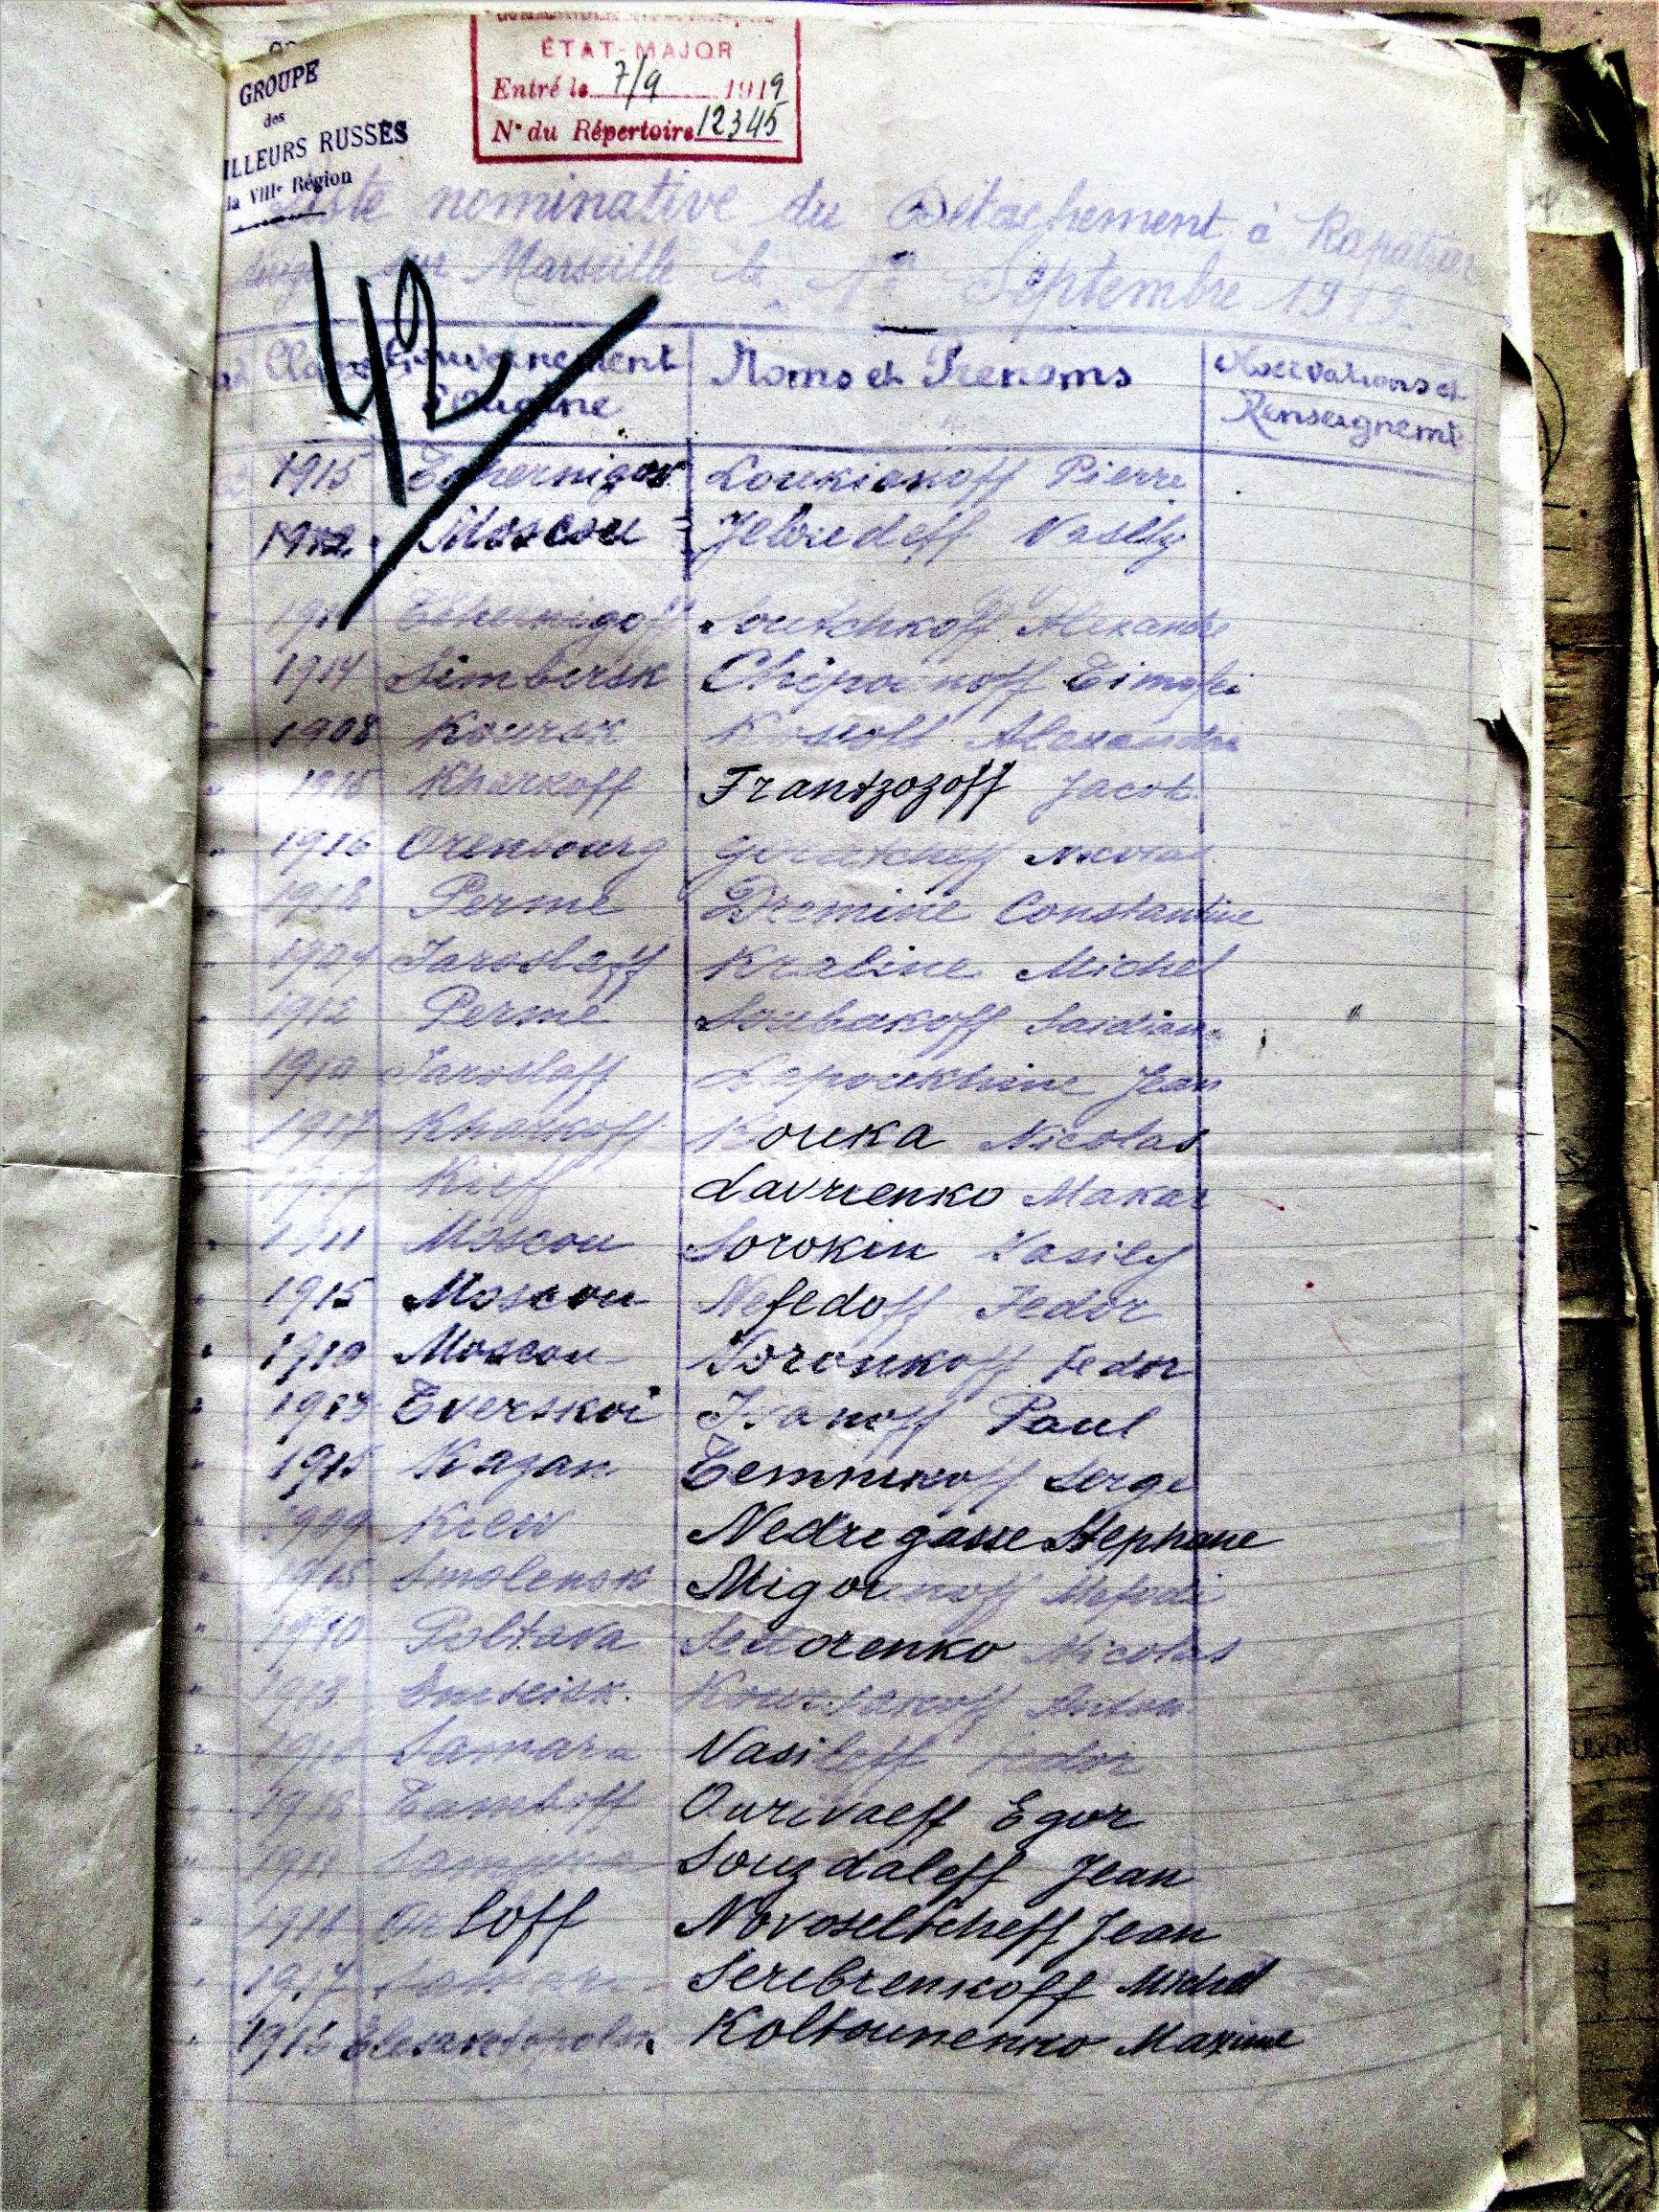 GROUPE
des
ILLEURS RUSSES
la VIIIe Région
ÉTAT-MAJOR
Entré le 7/9 1919
N° du Répertoire 12345
Liste nominative du Détachement à Rapatrier
dirigé sur Marseille le 1er Septembre 1919.
42
Classe Gouvernement d'origine Noms et Prenoms Observations et Renseignemts
1915 Tchernigov Loukianoff Pierre
1912 Moscou Vasily
Tchernigoff Soutchkoff Alexandre
1914 Simbersk Timofei
1908 Koursk Alexandre
1915 Kharkoff Frantzozoff Jacob
1916 Orenbourg Nicolas
1918 Perme Dremine Constantine
Iaroslaff Kraline Michel
1912 Perme Soubakoff
1910 Iaroslaff Lapoukhine Jean
1917 Kharkoff Kouka Nicolas
Kieff Lavrienko Makar
1911 Moscou Sorokin Vasily
1915 Moscou Nefedoff Fedor
1910 Moscou Voronkoff Fedor
1913 Tverskoi Ivanoff Paul
1915 Kazan Temnikoff Serge
1909 Kiew Nedrigasse Stephane
1915 Smolensk Migounoff Mefodi
1910 Poltava Nicolas
1913
Samara Vasileff Fedor
1918 Tamboff Ourivaeff Egor
1911 Souzdaleff Jean
Orloff Novoseltcheff Jean
1917 Serebrenkoff Michel
Koltounenko Maxime